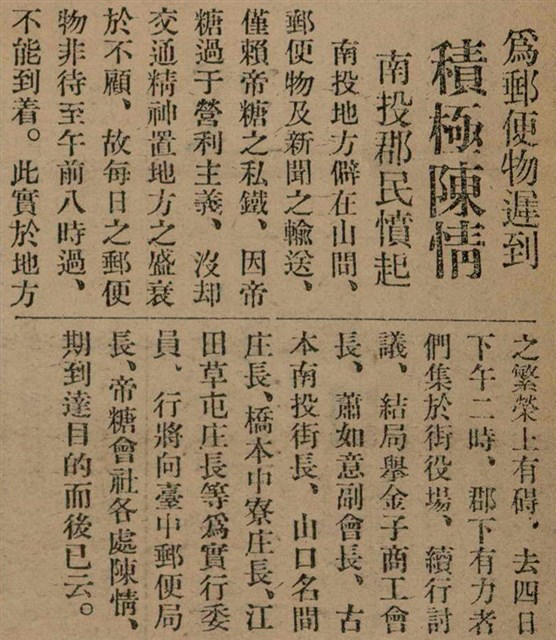 爲郵便物遲到
積極陳情
南投郡民憤起
南投地方僻在山間、
郵便物及新聞之輸送、
僅賴帝糖之私鐵、因帝
糖過于營利主義、沒却
交通精神置地方之盛衰
於不顧、故每日之郵便
物非待至午前八時過、
不能到着。此實於地方
之繁榮上有碍、去四日
下午二時、郡下有力者
們集於街役場、續行討
議、結局舉金子商工會
長、蕭如意副會長、古
本南投街長、山口名間
庄長、橋本中寮庄長、江
田草屯庄長等爲實行委
員、行將向臺中郵便局
長、帝糖會社各處陳情、
期到達目的而後已云。